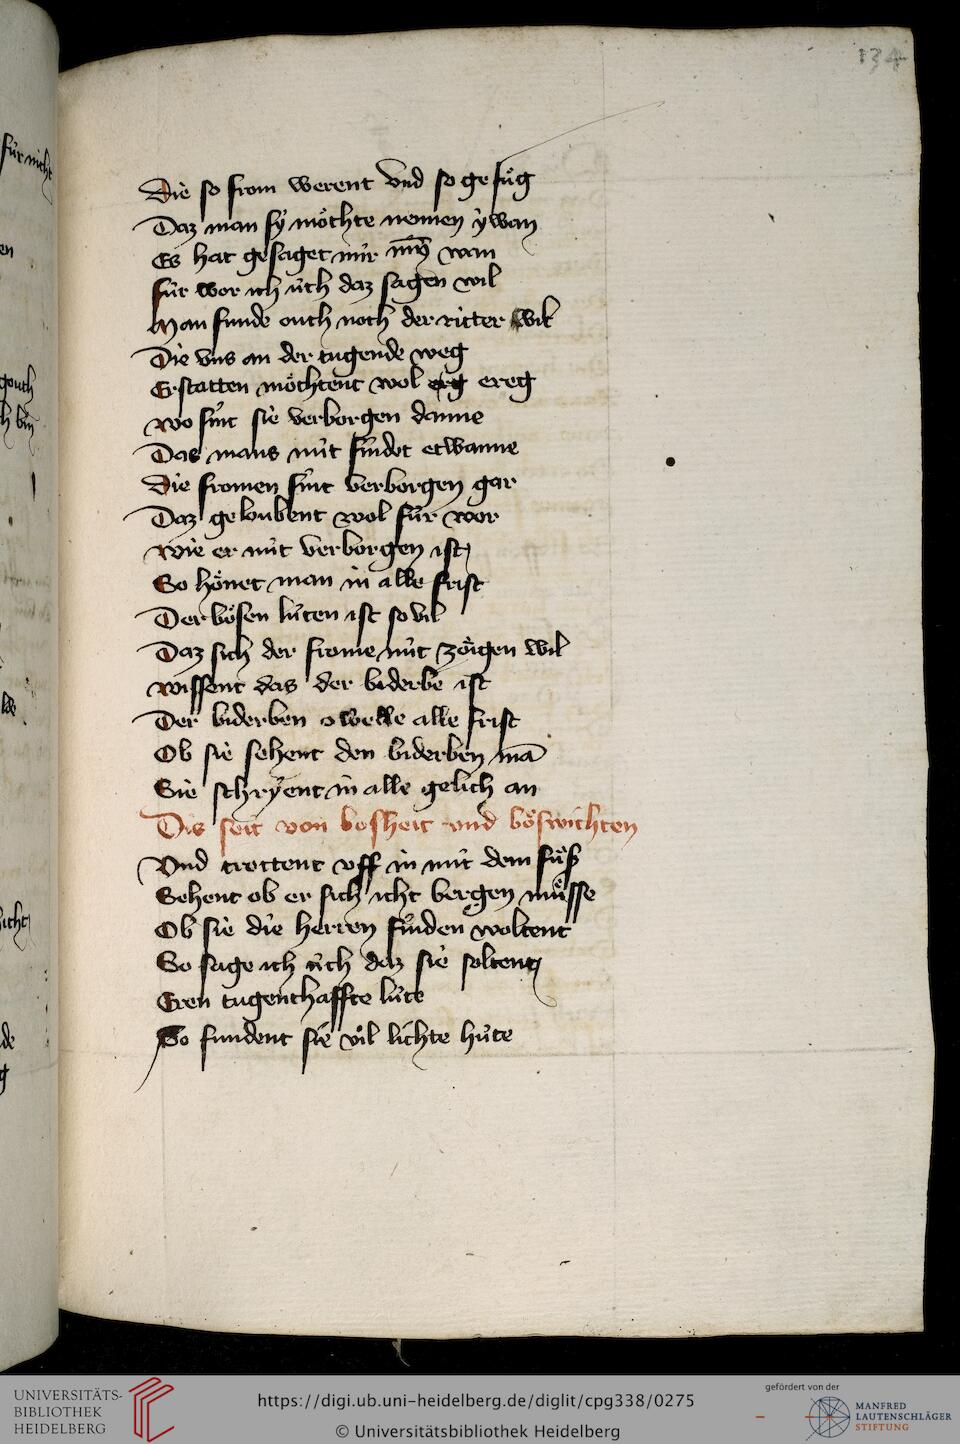 134
Die so from werent vnd so gefuͤg
Daz man sy moͤchte nennen ywan
Es hat gesaget mir my̅ wan
fúr wor ich úch daz sagen wil
Man funde ouch noch der ritter wil
Die vns an der tugende weg
Erstatten moͤchtent wol erg ereg
wo sint sie verborgen danne
Das mans nút findet etwanne
Die fromen sint verborgen gar
Daz geloubent wol fúr wor
wie er nút verborgen ist
So hoͤnet man in alle frist
Der boͤsen lúten ist so vil
Daz sich der frome nút zoͤigen wil
wissent das der biderbe ist
Der biderben owelle alle frist
Ob sie sehent den biderben mā
Sie schryent in alle gelich an
Dis seit von bosheit vnd boͤswichten
Vnd trottent vff in mit dem fuͤß
Sehent ob er sich icht bergen muͤsse
Ob sie die herren finden woltent
So sage ich úch daz sie soltent
Eren tugenthaffte lúte
So fundent sie vil lichte húte
UNIVERSITÄTS-
BIBLIOTHEK
HEIDELBERG
https://digi.ub.uni-heidelberg.de/diglit/cpg338/0275
© Universitätsbibliothek Heidelberg
gefördert von der
MANFRED
LAUTENSCHLÄGER
STIFTUNG